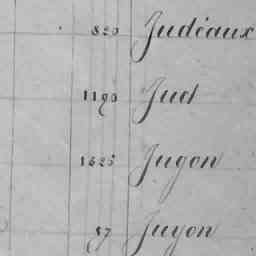 820 Judéaux
1190 Jud
1625 Jugon
57 Juyon